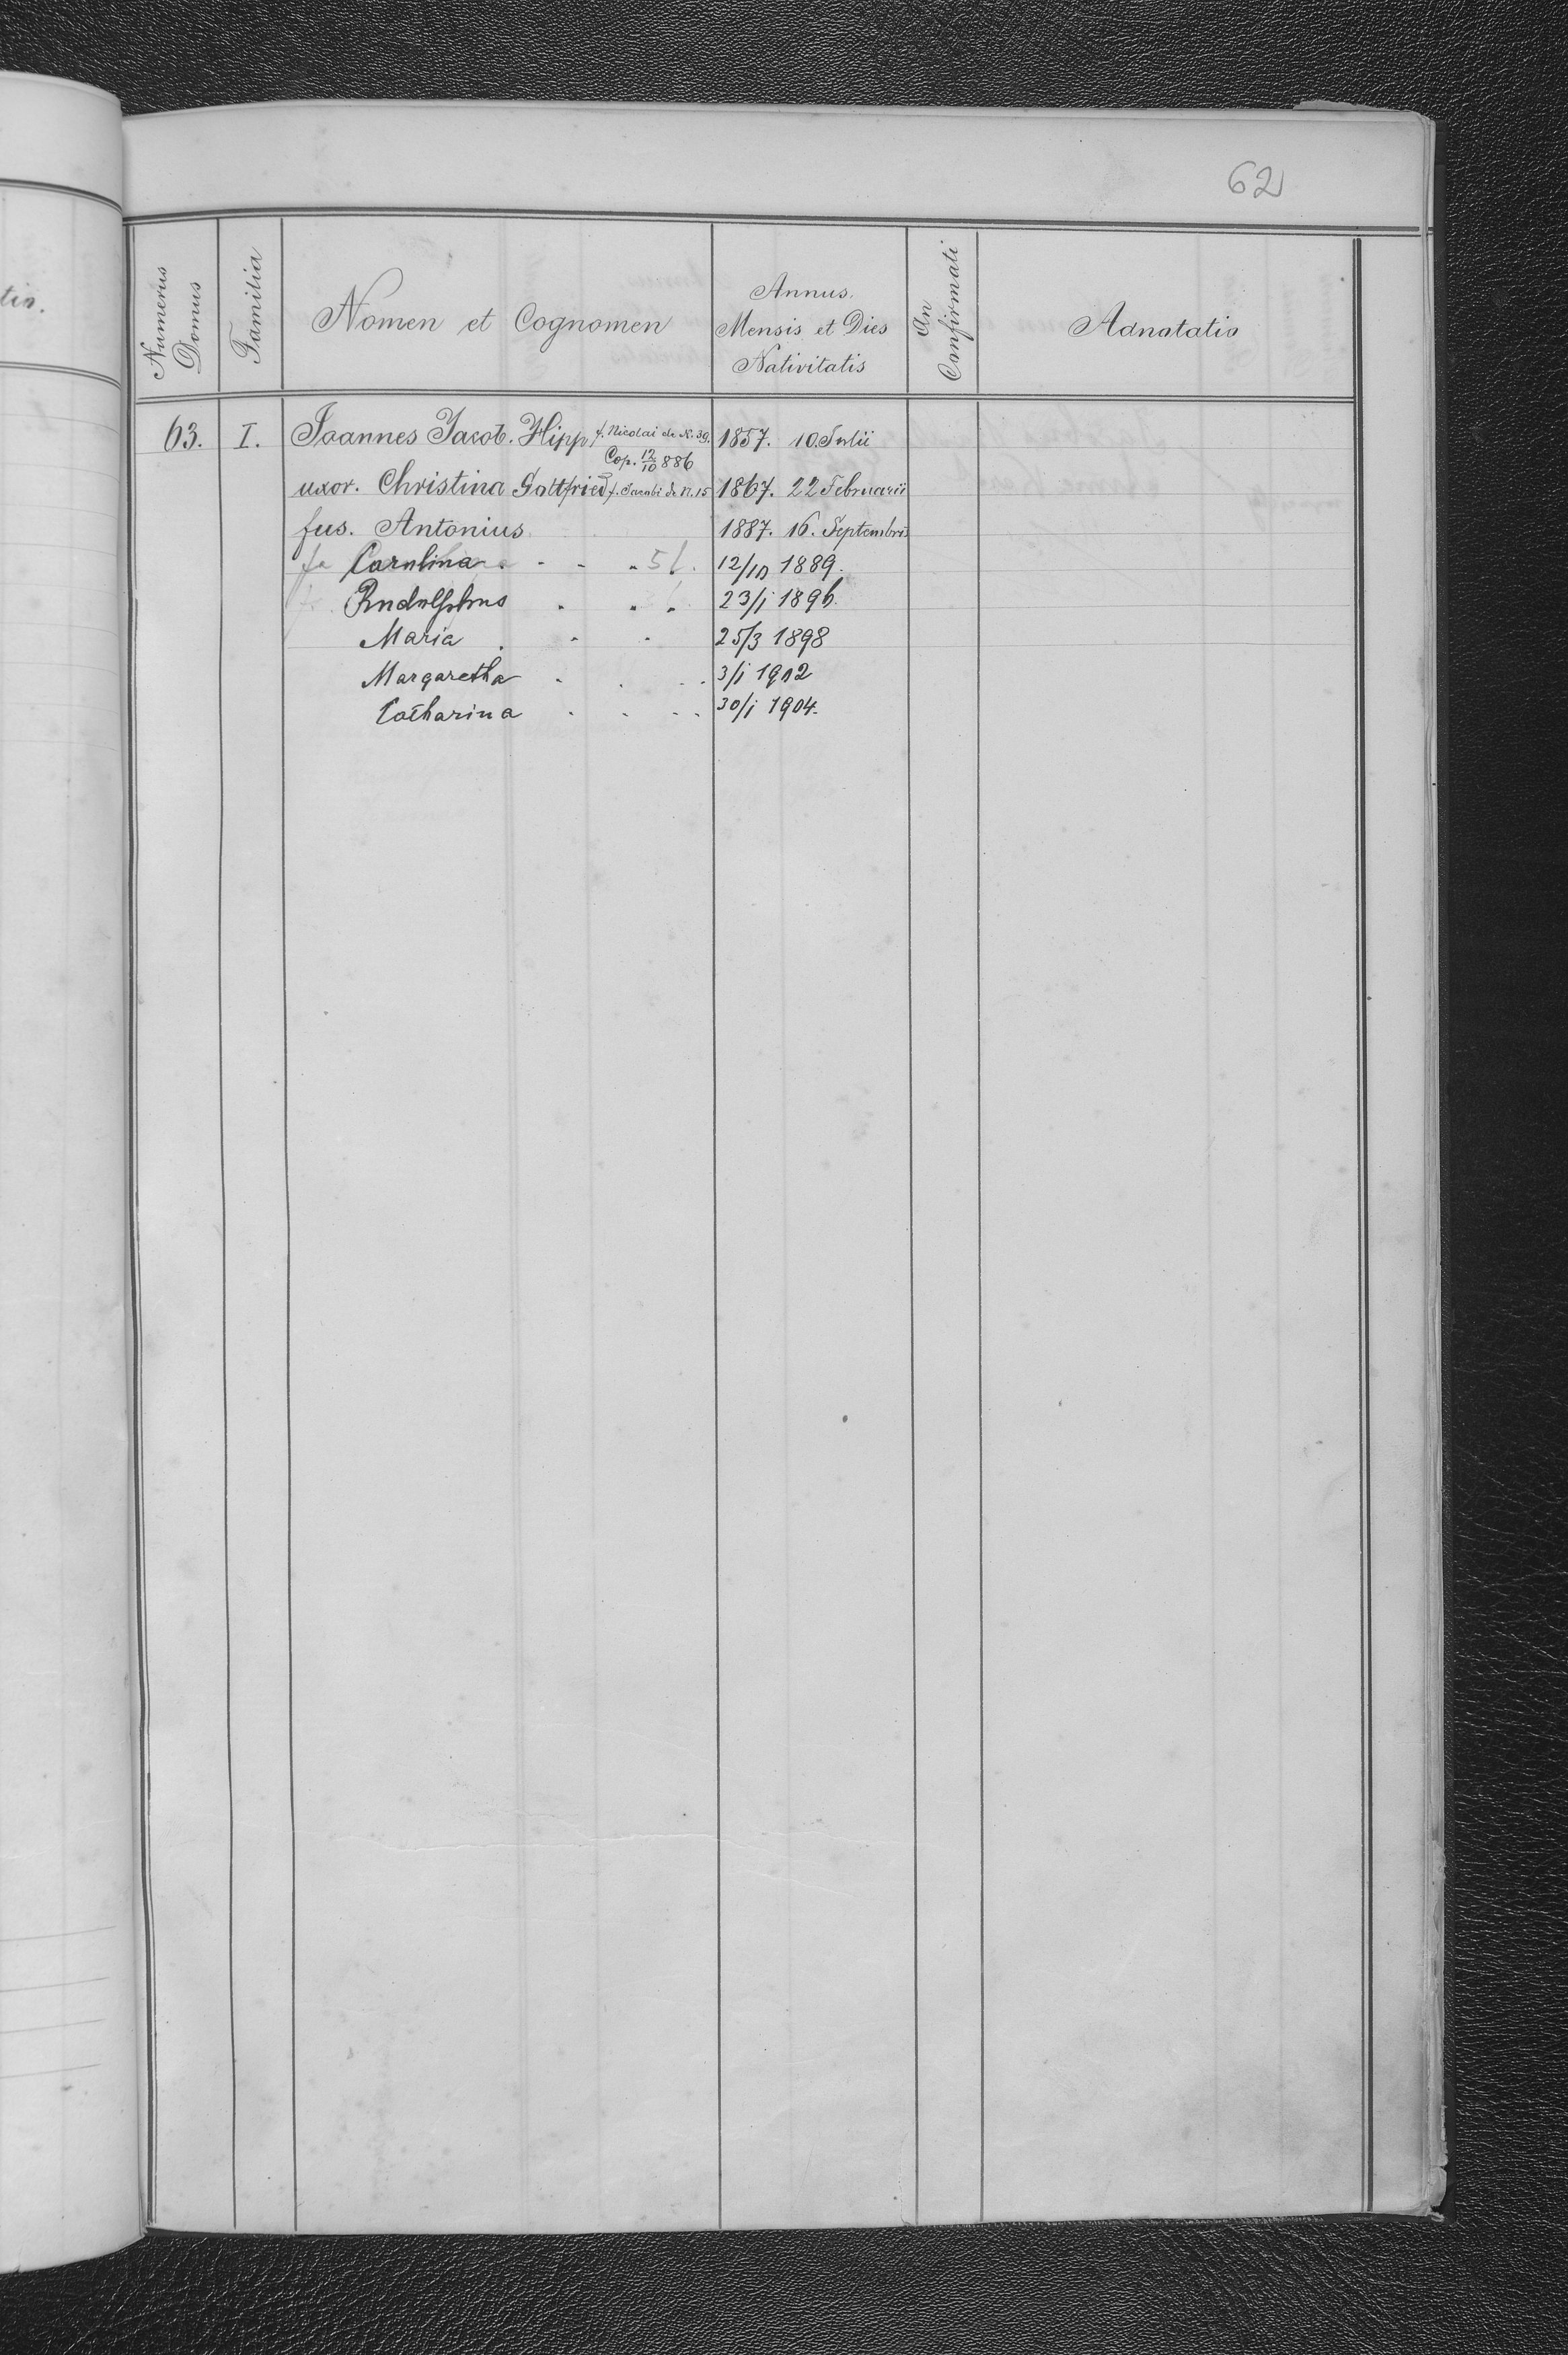 62
Numerus Domus
Familia
Nomen et Cognomen
Annus
Mensis et Dies
Nativitatis
An Confirmati
Adnotatio
63. I. Joannes Jacob. Hipp f. Nicolai de N. 39. 1857. 10. Julii
Cop. 12/10 886
uxor. Christina Gottfried f. Jacobi de N. 15 1867. 22 Februarii
fus. Antonius 1887. 16. Septembris
fa Carolina 12/10 1889.
Rudolphus 23/i 1896.
Maria 25/3 1898
Margaretha 3/i 1902
Catharina 30/i 1904.